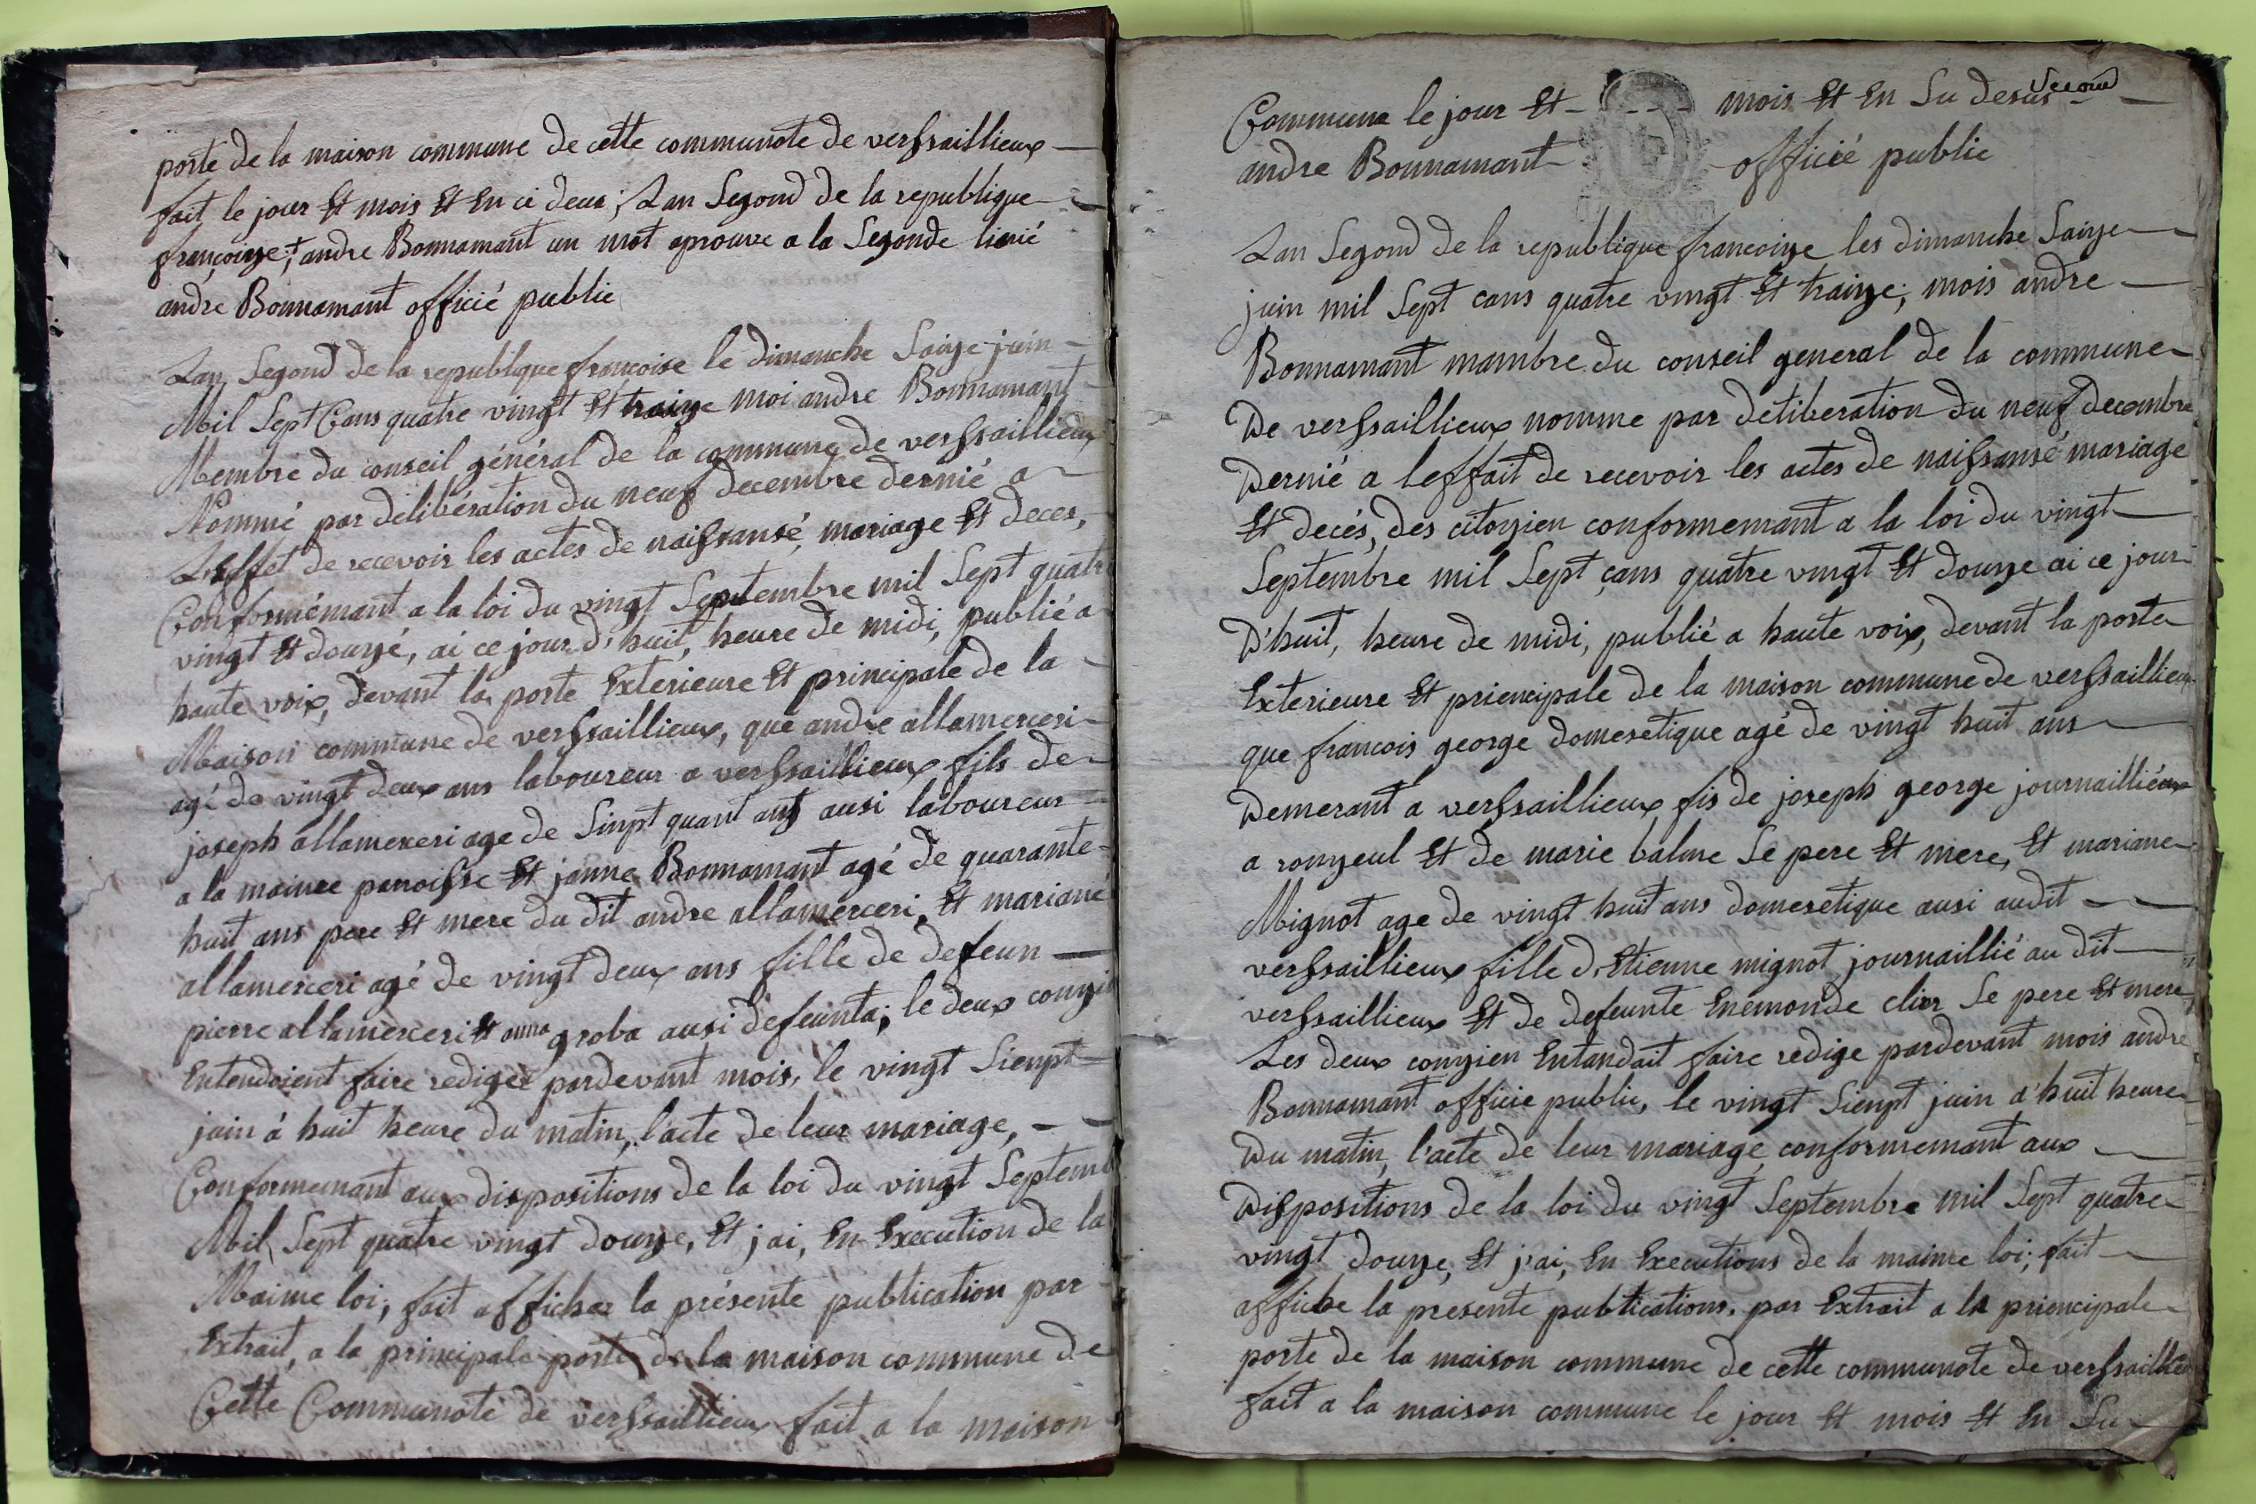 porte de la maison commune de cette communote de versaillieux
fait le jour Et mois Et En ci deux, Lan Segond de la republique
françoize, andre Bonnamant un mot aprouve a la Segonde linié
andre Bonnamant officié public
Lan Segond de la republique françoise le dimanche Saize juin
Mil Sept Cans quatre vingt Et traize moi andre Bonnamant
Membre du conseil général de la commune de versaillieux
Nommé par délibération du neuf decembre dernié a
L'effet de recevoir les actes de naissansé, mariage Et deces,
Conformémant a la loi du vingt Septembre mil Sept quatre
vingt Et douzé, ai ce jour d'huit, heure de midi, publié a
haute voix, devant la porte Exterieure Et principale de la
Maison commune de versaillieux, que andre allamerceri
agé de vingt deux ans laboureur a versaillieux fils de
joseph allamerceri age de Sinpt quant ans ausi laboureur
a la maime paroisse Et janne Bonnamant agé de quarante
huit ans pere Et mere du dit andre allamerceri, Et mariané
allamerceri agé de vingt deux ans fille de defeun
pierre allamerceri Et anna groba ausi defeunta; le deux conzi
Entendoient faire rediger pardevant mois, le vingt Sienpt
juin á huit heure du matin, l'acte de leur mariage,
Conformemant aux dispositions de la loi du vingt Septemb
Mil Sept quatre vingt douze, Et j'ai, En Execution de la
Maime loi, fait afficher la présente publication par
Extrait, a la principale porte de la maison commune de
Cette Communote de versaillieux fait a la maison
Second
Commune le jour Et mois Et En Su desus
andre Bonnamant officié public
Lan Segond de la republique francoize les dimanche Saize
juin mil Sept cans quatre vingt Et traize, mois andre
Bonnamant mambre du conseil general de la commune
De versaillieux nomme par deliberation du neuf decembre
Dernié a leffait de recevoir les actes de naissansé mariage
Et decés, des citoyien conformemant a la loi du vingt
Septembre mil Sept çans quatre vingt Et douze ai ce jour
D'huit, heure de midi, publié a haute voix, devant la porte
Exterieure Et priencipale de la maison commune de versaillieux
que francois george domesetique agé de vingt huit ans
Demerant a versaillieux fis de joseph george journailliéux
a ronzeul Et de marie balme Se pere Et mere, Et mariane
Mignot age de vingt huit ans domesetique ausi audit
versaillieux fille d'Etienne mignot journaillié au dit
versaillieux Et de defeunte Enemonde clier Se pere Et mere
Les deux conzien Entandait faire redige pardevant mois andre
Bonnamant officie public, le vingt Sienpt juin a'huit heure
Du matin, l'acte de leur mariage conformemant aux
Dispositions de la loi du vingt Septembre mil Sept quatre
vingt douze, Et j'ai, En Executions de la maime loi, fait
affiche la presente publications, par Extrait a la priencipale
porte de la maison commune de cette communote de versaillie
fait a la maison commune le jour Et mois Et En Su